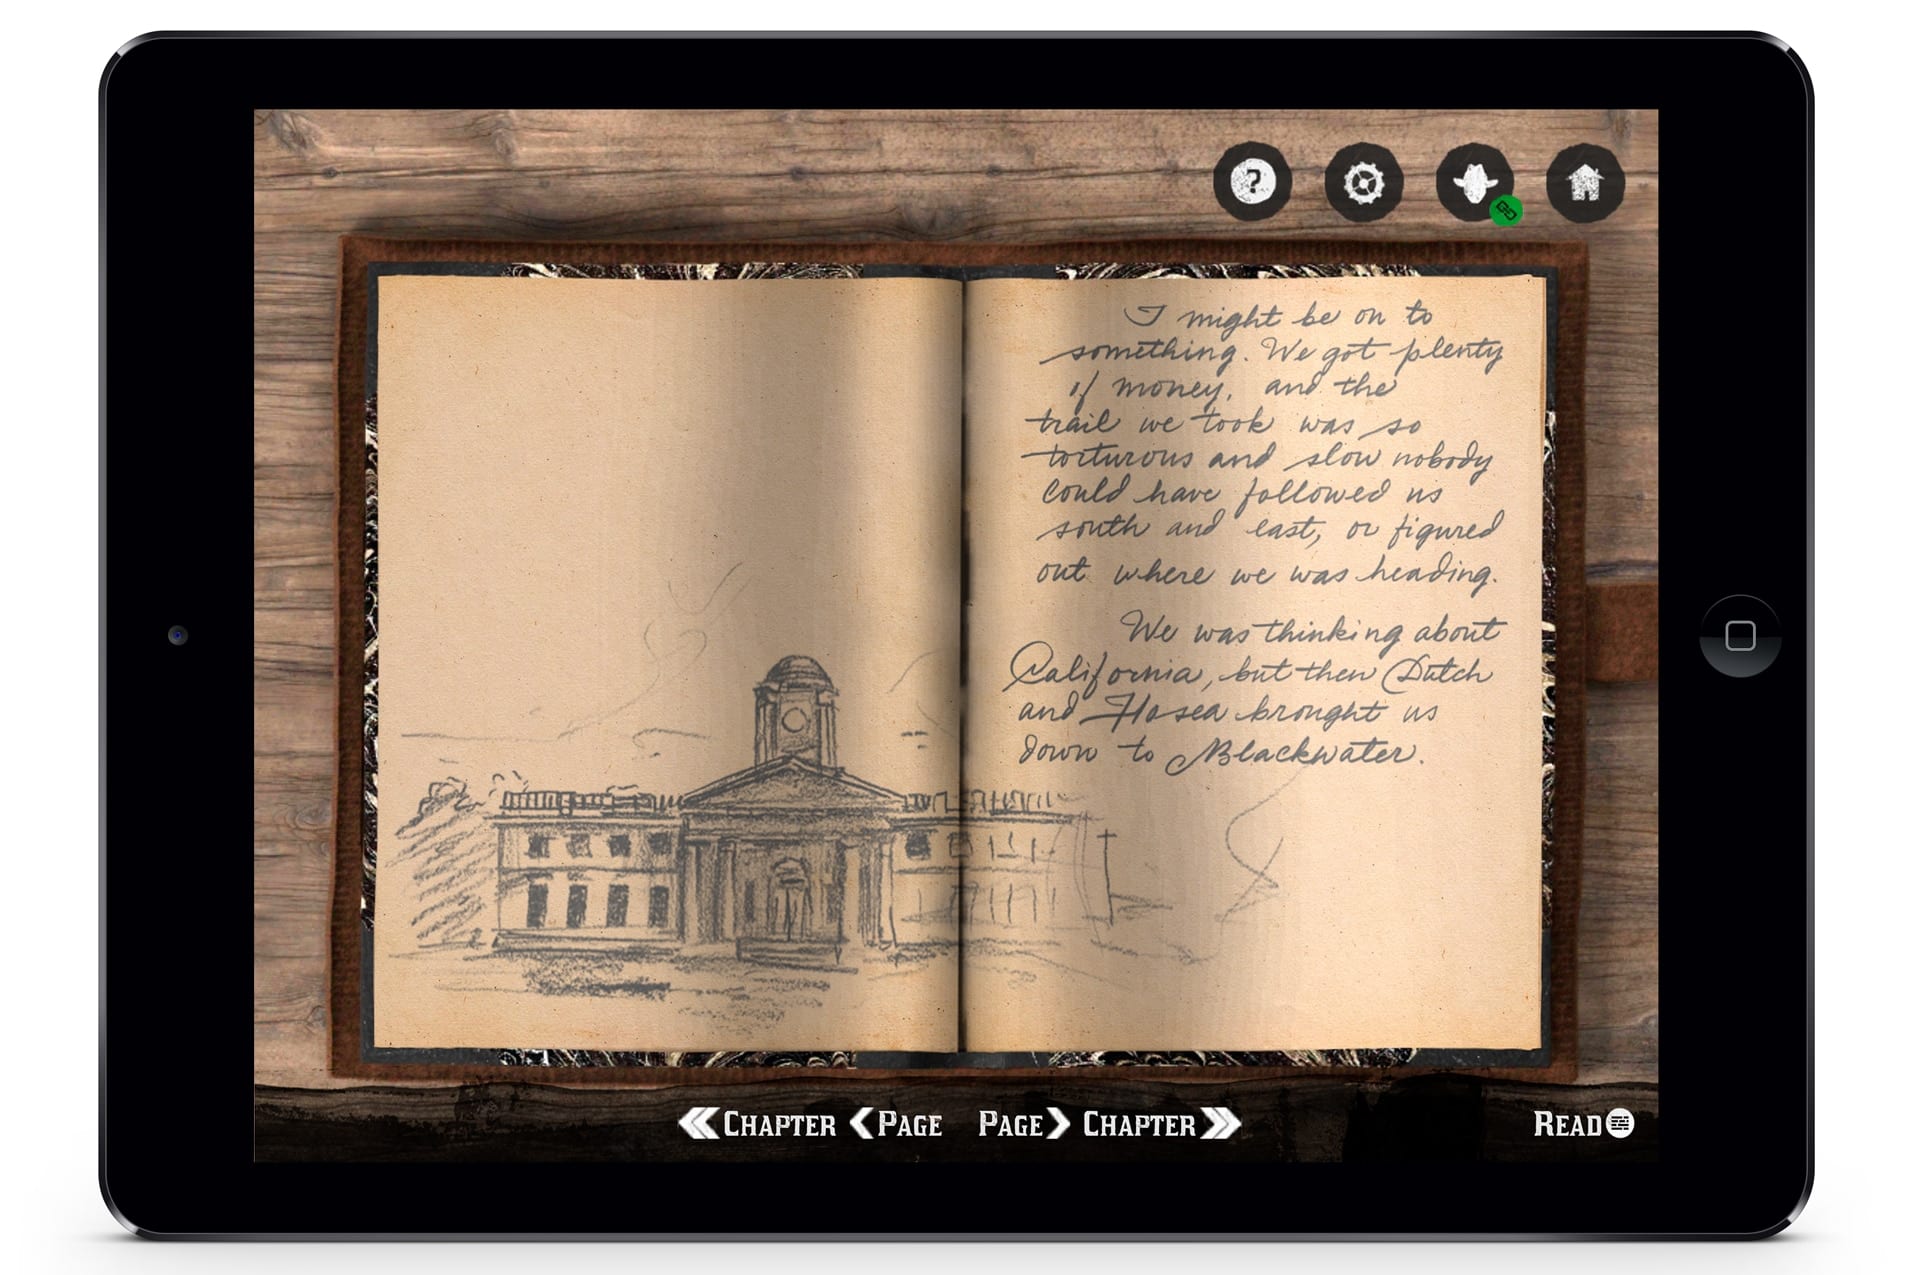 ?
I might be on to
something. We got plenty
of money, and the
trail we took was so
torturous and slow nobody
could have followed us
south and east, or figured
out where we was heading.
We was thinking about
California, but then Dutch
and Hosea brought us
down to Blackwater.
CHAPTER PAGE PAGE CHAPTER READ